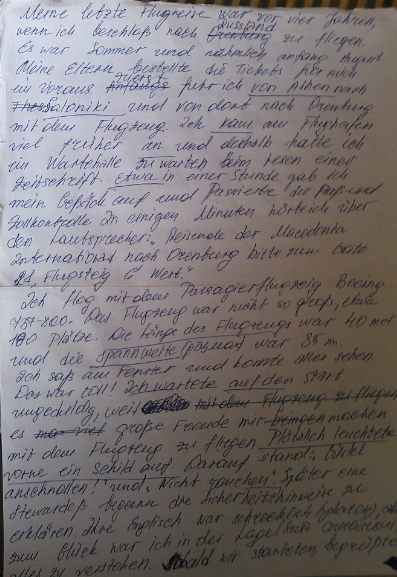 Meine letzte Flugreise war vor vier Jahren,
wenn ich beschloß nach Russland Orenburg zu fliegen.
Es war Sommer und nähmlich anfang
Meine Eltern bestellte die Tickets für mich
im voraus zuerst Anfangs fuhr ich von Athen nach
Thessaloniki und von dort nach Orenburg
mit dem Flugzeug. Ich kam am Flughafen
viel früher an und deshalb hatte ich
im Wartehalle zu warten beim lesen einer
Zeitschrift. Etwa in einer Stunde gab ich
mein Gepäck auf und Passierte die Paß und
Zollkontrolle. In einigen Minuten hörte ich über
den Lautsprecher: „Reisende der Macedonia
International nach Orenburg bitte zum Gate
Flugsteig
Ich flog mit dem Passagierflugzeug Boeing
737-800. Das Flugzeug war nicht so groß, etwa
Plätze. Die Länge des Flugzeugs war 40 met
und die spannweite war 35 m.
Ich saß am Fenster und konnte alles sehen
Das war toll! Ich wartete auf den Start
ungeduldig, weil mit dem Flugzeug zu fliegen
es große Freude mir bringen machen
mit dem Flugzeug zu fliegen. Plötzlich leuchtete
vorne ein Schild auf. Darauf stand: „Bitte
anschnallen!" und „Nicht rauchen! Später eine
Stewardeß begann die Sicherheitshinweise zu
erklären. Ihre Englisch war schrecklich
zum Glück war ich in der Lage
alles zu verstehen. Sobald wir starteten, begrüßte